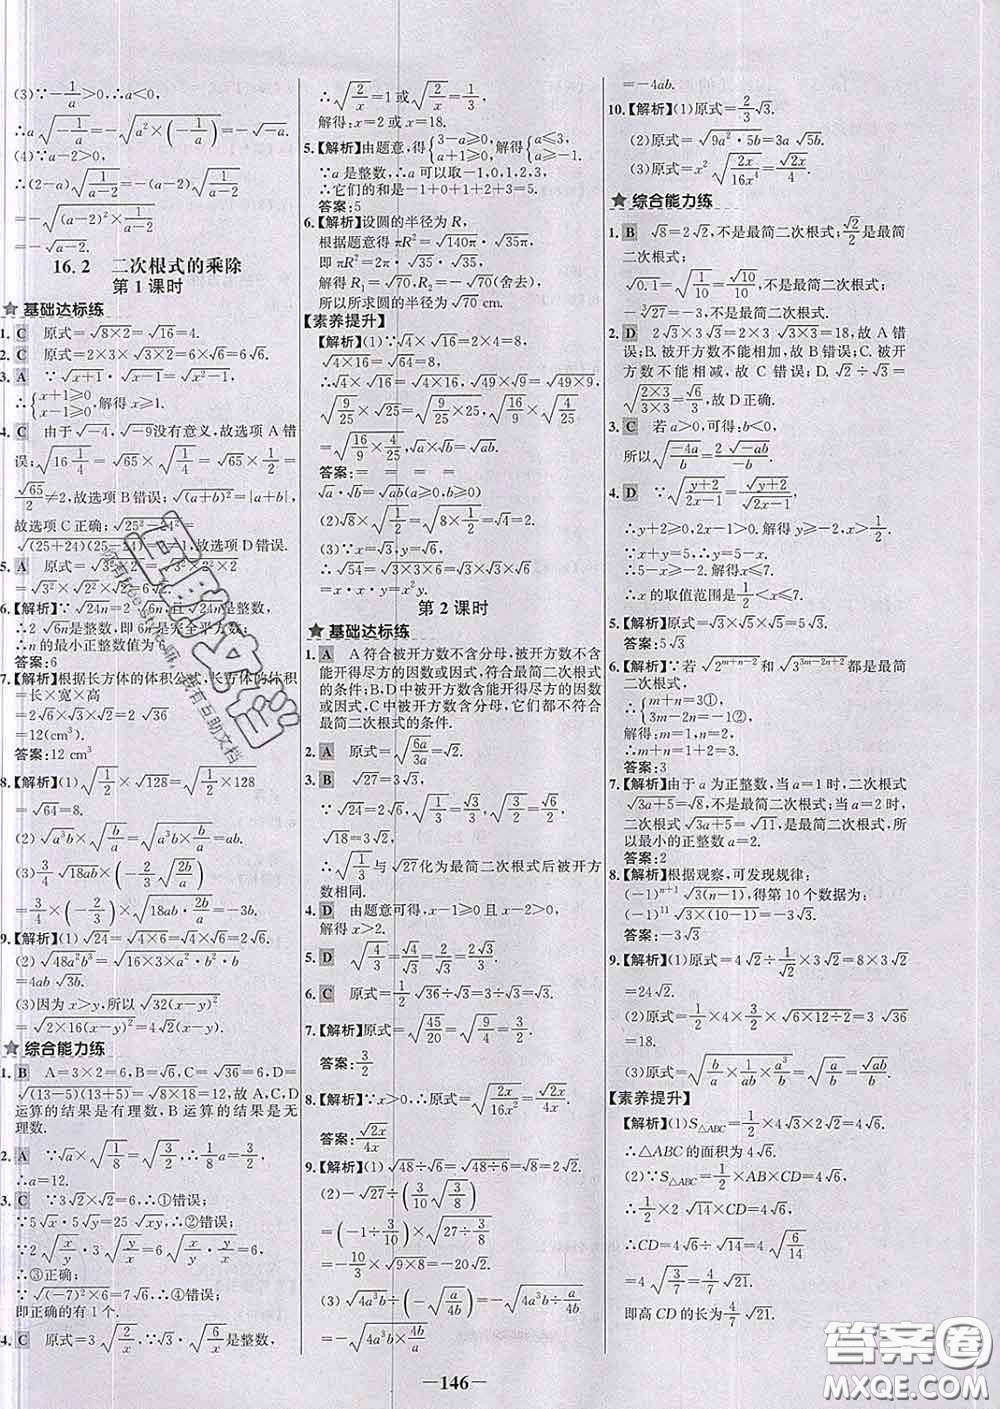 (3)∵−1/a>0,∴a<0,
∴a√(−1/a)=−√(a²×(−1/a))=−√(−a).
(4)∵a−2>0,
∴(2−a)√(1/(a−2))=−(a−2)√(1/(a−2))
=−√((a−2)²×1/(a−2))
=−√(a−2).
16.2 二次根式的乘除
第1课时
★ 基础达标练
1. C 原式=√(8×2)=√16=4.
2. C 原式=2×3×√(3×2)=6×√6=6√6.
3. A ∵√(x+1)·√(x−1)=√(x²−1),
∴{x+1⩾0 x−1⩾0,解得x⩾1.
4. C 由于√−4,√−9没有意义,故选项A错
误;√(16 1/4)=√(65×1/4)=√65×√(1/4)=
√65/2≠2,故选项B错误;√(a+b)²=|a+b|,
故选项C正确;√(25²−24²)=
√((25+24)(25−24))≠1,故选项D错误.
5. A 原式=√(3²×2²×2²)
=√3²×√2²×√2²
6.【解析】∵√24n=2√6n且是整数,
∴2√6n是整数,即6n是完全平方数;
∴n的最小正整数值为6
答案:6
7.【解析】根据长方体的体积公式,长方体的体积
=长×宽×高
=2√6×√6=2√36
=12(cm³)
答案:12 cm³
8.【解析】(1)√(1/2)×√128=√(1/2×128)
=√64=8.
(2)√(a³b)×√(b/a)=√(a³b×b/a)=ab.
(3)3/4√18ab×(−2/3√(2b/a))
=3/4×(−2/3)×√(18ab·2b/a)=−3b.
9.【解析】(1)√24=√(4×6)=√4×√6=2√6.
(2)√(48a²b³)=√(16×3×a²·b²×b)
=4ab√3b.
(3)因为x>y,所以√(32(x−y)²)
=√(2×16(x−y)²)=4√2(x−y)
★ 综合能力练
1. B A=3×2=6,B=√6,C=√36=6,D=
√((13−5)(13+5))=√(8×18)=12.故A,C,D
运算的结果是有理数,B运算的结果是无
理数.
2. A ∵√a×√(1/8)=√(3/2),∴√(a/8)=√(3/2),
∴a=12.
3. C ∵3√2×√2=6,∴①错误;
∵5√x·5√y=25√xy,∴②错误;
∵2√(x/y)·3√(y/x)=6√(x/y·y/x)=6,
∴③正确;
∵√(−7)²×6=7√6,∴④错误;
即正确的有1个.
4. C 原式=3√(2/x),∵√(2/x)·√(6/x)是整数,
∴√(2/x)=1或√(2/x)=1/3,
解得:x=2或x=18.
5.【解析】由题意,得{3−a⩾0, a+1⩾0,解得{a⩽3, a⩾−1.
∵a是整数,∴a可以取−1,0,1,2,3,
∴它们的和是−1+0+1+2+3=5.
答案:5
6.【解析】设圆的半径为R,
根据题意得πR²=√140π·√35π.
即πR²=√140π×35π=70π,
解得R₁=√70,R₂=−√70(舍去).
所以所求圆的半径为√70 cm.
【素养提升】
【解析】(1)∵√4×√16=2×4=8,
√(4×16)=√64=8,
∴√4×√16=√(4×16),√49×√9=√(49×9),
√(9/25)×√25=√(9/25×25),√(16/9)×√(4/25)
=√(16/9×4/25),√a×√b=√ab.
答案:= = =
√a·√b=√ab(a⩾0,b⩾0)
(2)√8×√(1/2)=√(8×1/2)=√4=2.
(3)∵x=√3,y=√6,
∴√54=√(3×3×6)=√3×√3×√6
=x·x·y=x²y.
第2课时
★ 基础达标练
1. A A符合被开方数不含分母,被开方数不含
能开得尽方的因数或因式,符合最简二次根式
的条件;B,D中被开方数含能开得尽方的因数
或因式,C中被开方数含分母,它们都不符合
最简二次根式的条件.
2. A 原式=√(6a/3a)=√2.
3. B √27=3√3.
∵√24=2√6,√(1/3)=√3/3,√(3/2)=√6/2,
√18=3√2.
∴√(1/3)与√27化为最简二次根式后被开方
数相同.
4. D 由题意可得,x−1⩾0且x−2>0,
解得x>2.
5. D √(4/3)=√4/√3=2/√3=2√3/3.
6. C 原式=1/2√36÷√3=3÷√3=√3.
7.【解析】原式=√(45/20)=√(9/4)=3/2.
答案:3/2
8.【解析】∵x>0,∴原式=√(2x/16x²)=√2x/4x.
答案:√2x/4x
9.【解析】(1)√48÷√6=√(48÷6)=√8=2√2.
(2)−√27÷(3/10√(3/8))
=(−1÷3/10)×√(27÷3/8)
=−10/3×√(9×8)=−20√2.
(3)√(4a³b)÷(−√(a/4b))=−√(4a³b÷a/4b)
=−√(4a³b×4b/a)
=−4ab.
10.【解析】(1)原式=2/3√3.
(2)原式=√(9a²·5b)=3a√5b.
(3)原式=x²√(2x/16x⁴)=√2x/4.
★ 综合能力练
1. B √8=2√2,不是最简二次根式;√2/2是最简
二次根式;
√0.1=√(1/10)=√10/10,不是最简二次根式;
−∛27=−3,不是最简二次根式.
2. D 2√3×3√3=2×3√(3×3)=18,故A错
误;B.被开方数不能相加,故B错误;C.被开
方数不能相减,故C错误;D.√2÷√3=
√(2×3/3×3)=√6/3,故D正确.
3. C 若a>0,可得:b<0,
所以√(−4a/b)=2√−ab/−b.
4. D ∵√((y+2)/(2x−1))=√(y+2)/√(2x−1),
∴y+2⩾0,2x−1>0,解得y⩾−2,x>1/2.
∵x+y=5,
∴5−x⩾−2,解得x⩽7.
∴x的取值范围是1/2<x⩽7.
5.【解析】原式=√3×√5×√5=5√3.
答案:5√3
6.【解析】∵若√(2^(m+n−2))和√(3^(3m−2n+2))都是最简
二次根式,
∴{m+n=3①, 3m−2n=−1②,
解得:m=1,n=2,
∴m+n=1+2=3.
答案:3
7.【解析】由于a为正整数,当a=1时,二次根式
√(3a+5)=√8,不是最简二次根式;当a=2时,
二次根式√(3a+5)=√11,是最简二次根式.所
以最小的正整数a=2.
答案:2
8.【解析】根据观察,可发现规律:
(−1)ⁿ⁺¹√(3(n−1)),得第10个数据为:
(−1)¹¹√(3×(10−1))=−3√3.
答案:−3√3
9.【解析】(1)原式=4√2÷1/2×3=8√2×3
=24√2.
(2)原式=1/2×4×3/2×√(6×12÷2)=3√36
=18.
(3)原式=√(b/a×1/ab×a³/b)=√(a/b)=√ab/b.
【素养提升】
【解析】(1)S△ABC=1/2×4√3×2√2=4√6.
∴△ABC的面积为4√6.
(2)∵S△ABC=1/2×AB×CD=4√6,
∴1/2×2√14×CD=4√6.
∴CD=4√6÷√14=4√(6/14)
=4√(3/7)=4/7√21.
即高CD的长为4/7√21.
—146—
答案圈
MXQE.COM